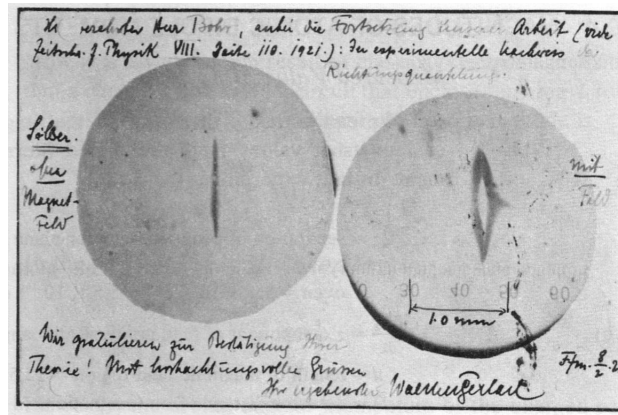 verehrter Herr Bohr, anbei die Fortsetzung unserer Arbeit (vide
Zeitschr. f. Physik VIII. Seite 110. 1921.): Der experimentelle Nachweis der
Richtungsquantelung.
Silber
ohne
Magnet-
Feld
mit
Feld
30 40 50 60
1.0 mm
Wir gratulieren zur Bestätigung Ihrer
Theorie! Mit hochachtungsvollen Grüssen
Ihr ergebenster Walther Gerlach
Ffm. 8/2. 2